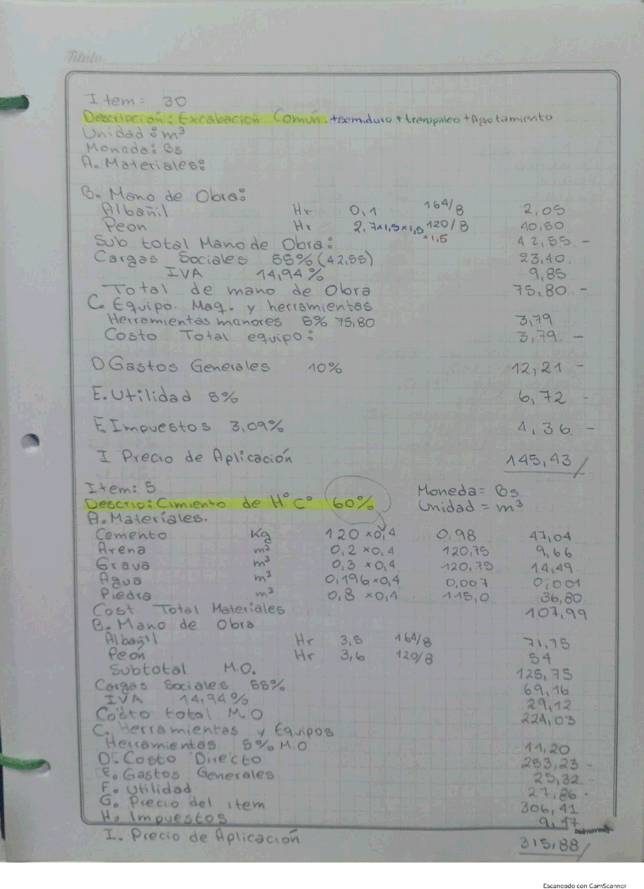 Título
Item: 30
Descripción: Excabación Común. +semiduro + traspaleo + Agotamiento
Unidad: m³
Moneda: Bs
A. Materiales:
B. Mano de Obra:
Albañil Hr 0,1 164/8 2,05
Peon Hr 2,7x1,5x1,5 120/8 40,50
x1,5
Sub total Mano de Obra: 42,55 -
Cargas Sociales 55% (42,55) 23,40
IVA 14,94% 9,85
Total de mano de Obra 75,80 -
C. Equipo. Maq. y herramientas
Herramientas menores 5% 75,80 3,79
Costo Total equipo: 3,79 -
D Gastos Generales 10% 12,21 -
E. Utilidad 5% 6,72 -
F. Impuestos 3,09% 4,36 -
I Precio de Aplicación 145,43
Item: 5 Moneda = Bs
Descrip: Cimiento de H°C° 60% Unidad = m³
A. Materiales.
Cemento Kg 120 x0,4 0,98 47,04
Arena m³ 0,2 x0,4 120,75 9,66
Grava m³ 0,3 x0,4 120,75 14,49
Agua m³ 0,196x0,4 0,007 0,001
Piedra m³ 0,8 x0,4 115,0 36,80
Cost Total Materiales 107,99
B. Mano de Obra
Albañil Hr 3,5 164/8 71,75
Peón Hr 3,6 120/8 54
Subtotal M.O. 125,75
Cargas Sociales 55% 69,16
IVA 14,94% 29,12
Costo total M.O 224,03
C. Herramientas y Equipos
Herramientas 5% M.O 11,20
D. Costo Directo 253,23 -
E. Gastos Generales 25,32 -
F. Utilidad 27,86 -
G. Precio del item 306,41
H. Impuestos 9,47
I. Precio de Aplicación 315,88
Escaneado con CamScanner